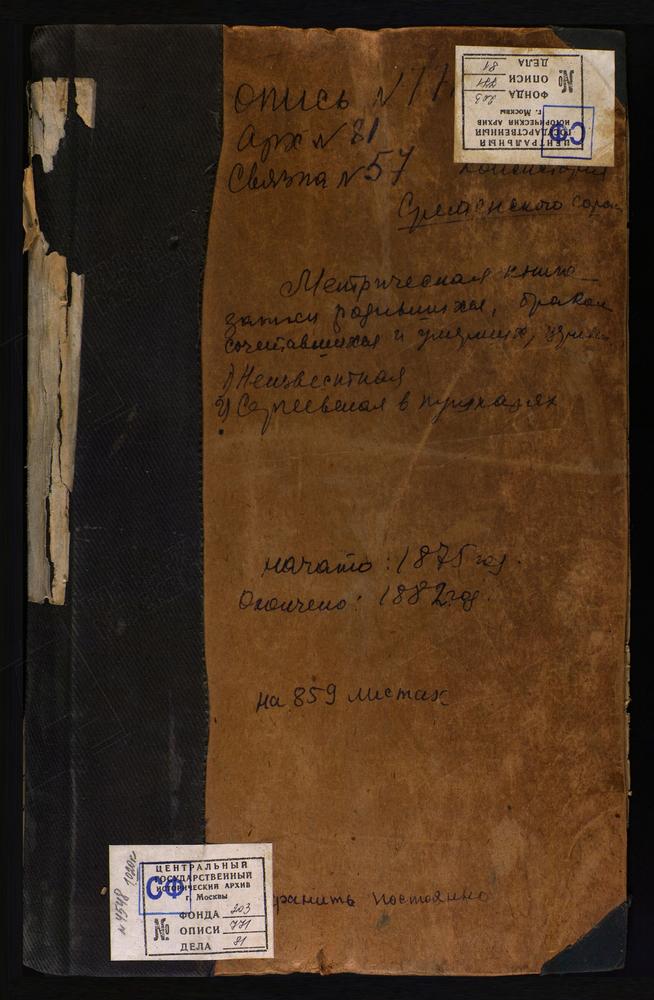 опись N 771
ЦЕНТРАЛЬНЫЙ
ГОСУДАРСТВЕННЫЙ
ИСТОРИЧЕСКИЙ АРХИВ
г. Москвы
СФ
№
ФОНДА 203
ОПИСИ 771
ДЕЛА 81
Арх N 81
Связка N 57
консистория
Сретенского сорок
Метрическая книга
записи родившихся, брако
сочетавшихся и умерших, церкви
1) Неизвестная
2) Сергиевская в пушкарях
начато: 1875 год.
Окончено: 1882 год.
на 859 листах
хранить постоянно
ЦЕНТРАЛЬНЫЙ
ГОСУДАРСТВЕННЫЙ
ИСТОРИЧЕСКИЙ АРХИВ
г. Москвы
СФ
№
ФОНДА 203
ОПИСИ 771
ДЕЛА 81